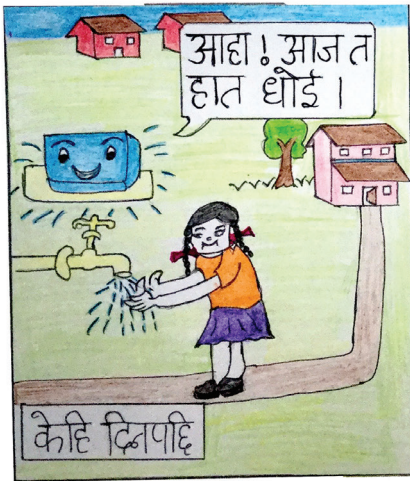 आहा! आज त
हात धोई।
केहि दिनपछि